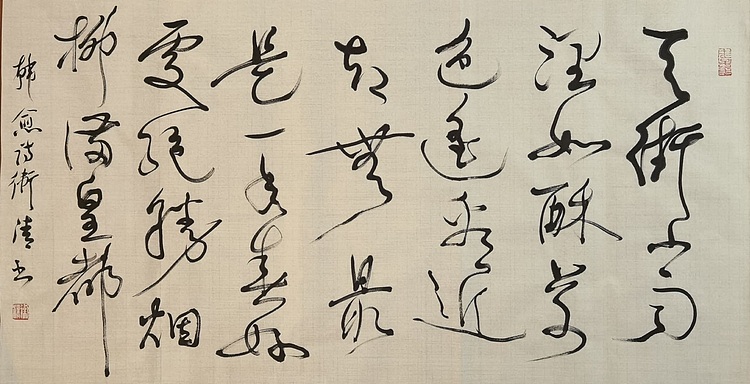 天街小雨
潤如酥草
色遥看近
却無最
是一年春好
處絕勝烟
柳滿皇都
韓愈詩衛清书